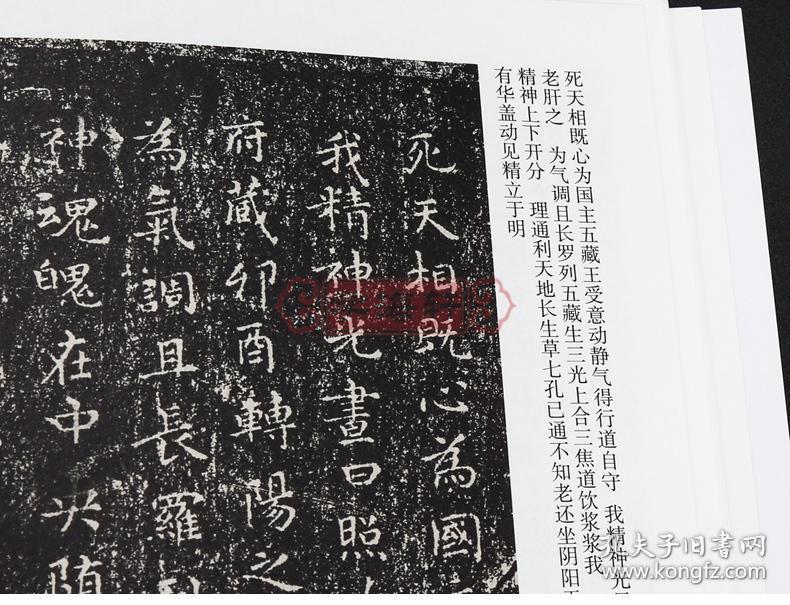 死天相既心为国主五藏王受意动静气得行道自守 我精神光
老肝之 为气调且长罗列五藏生三光上合三焦道饮浆浆我
精神上下开分 理通利天地长生草七孔已通不知老还坐阴阳
有华盖动见精立于明
死天相既心為國
我精神光晝日照
府藏卯酉轉陽之
為氣調且長羅
神魂魄在中央随
孔夫子旧书网
www.kongfz.com